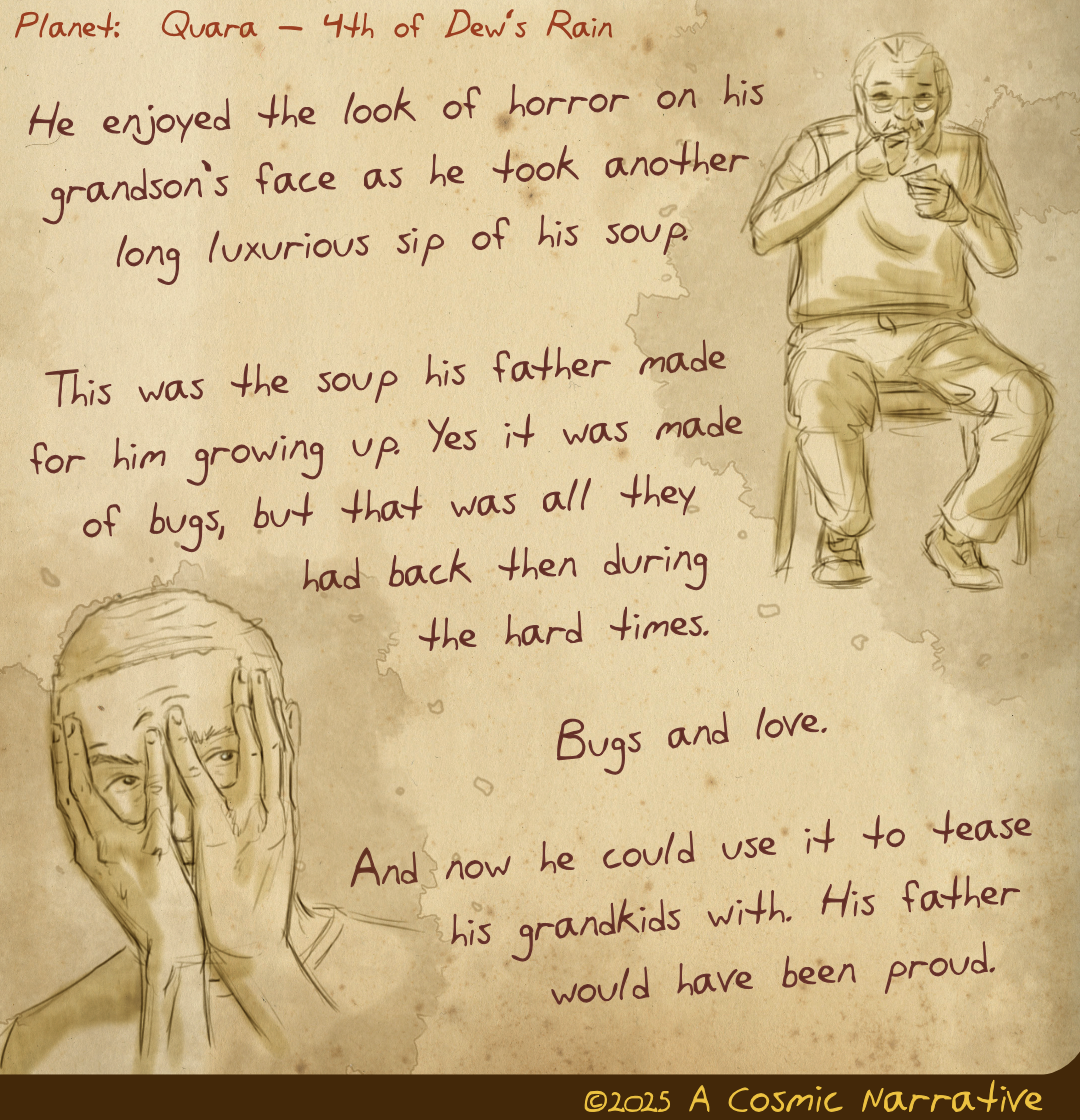 Planet: Quara – 4th of Dew's Rain
He enjoyed the look of horror on his
grandson's face as he took another
long luxurious sip of his soup.
This was the soup his father made
for him growing up. Yes it was made
of bugs, but that was all they
had back then during
the hard times.
Bugs and love.
And now he could use it to tease
his grandkids with. His father
would have been proud.
©2025 A Cosmic Narrative